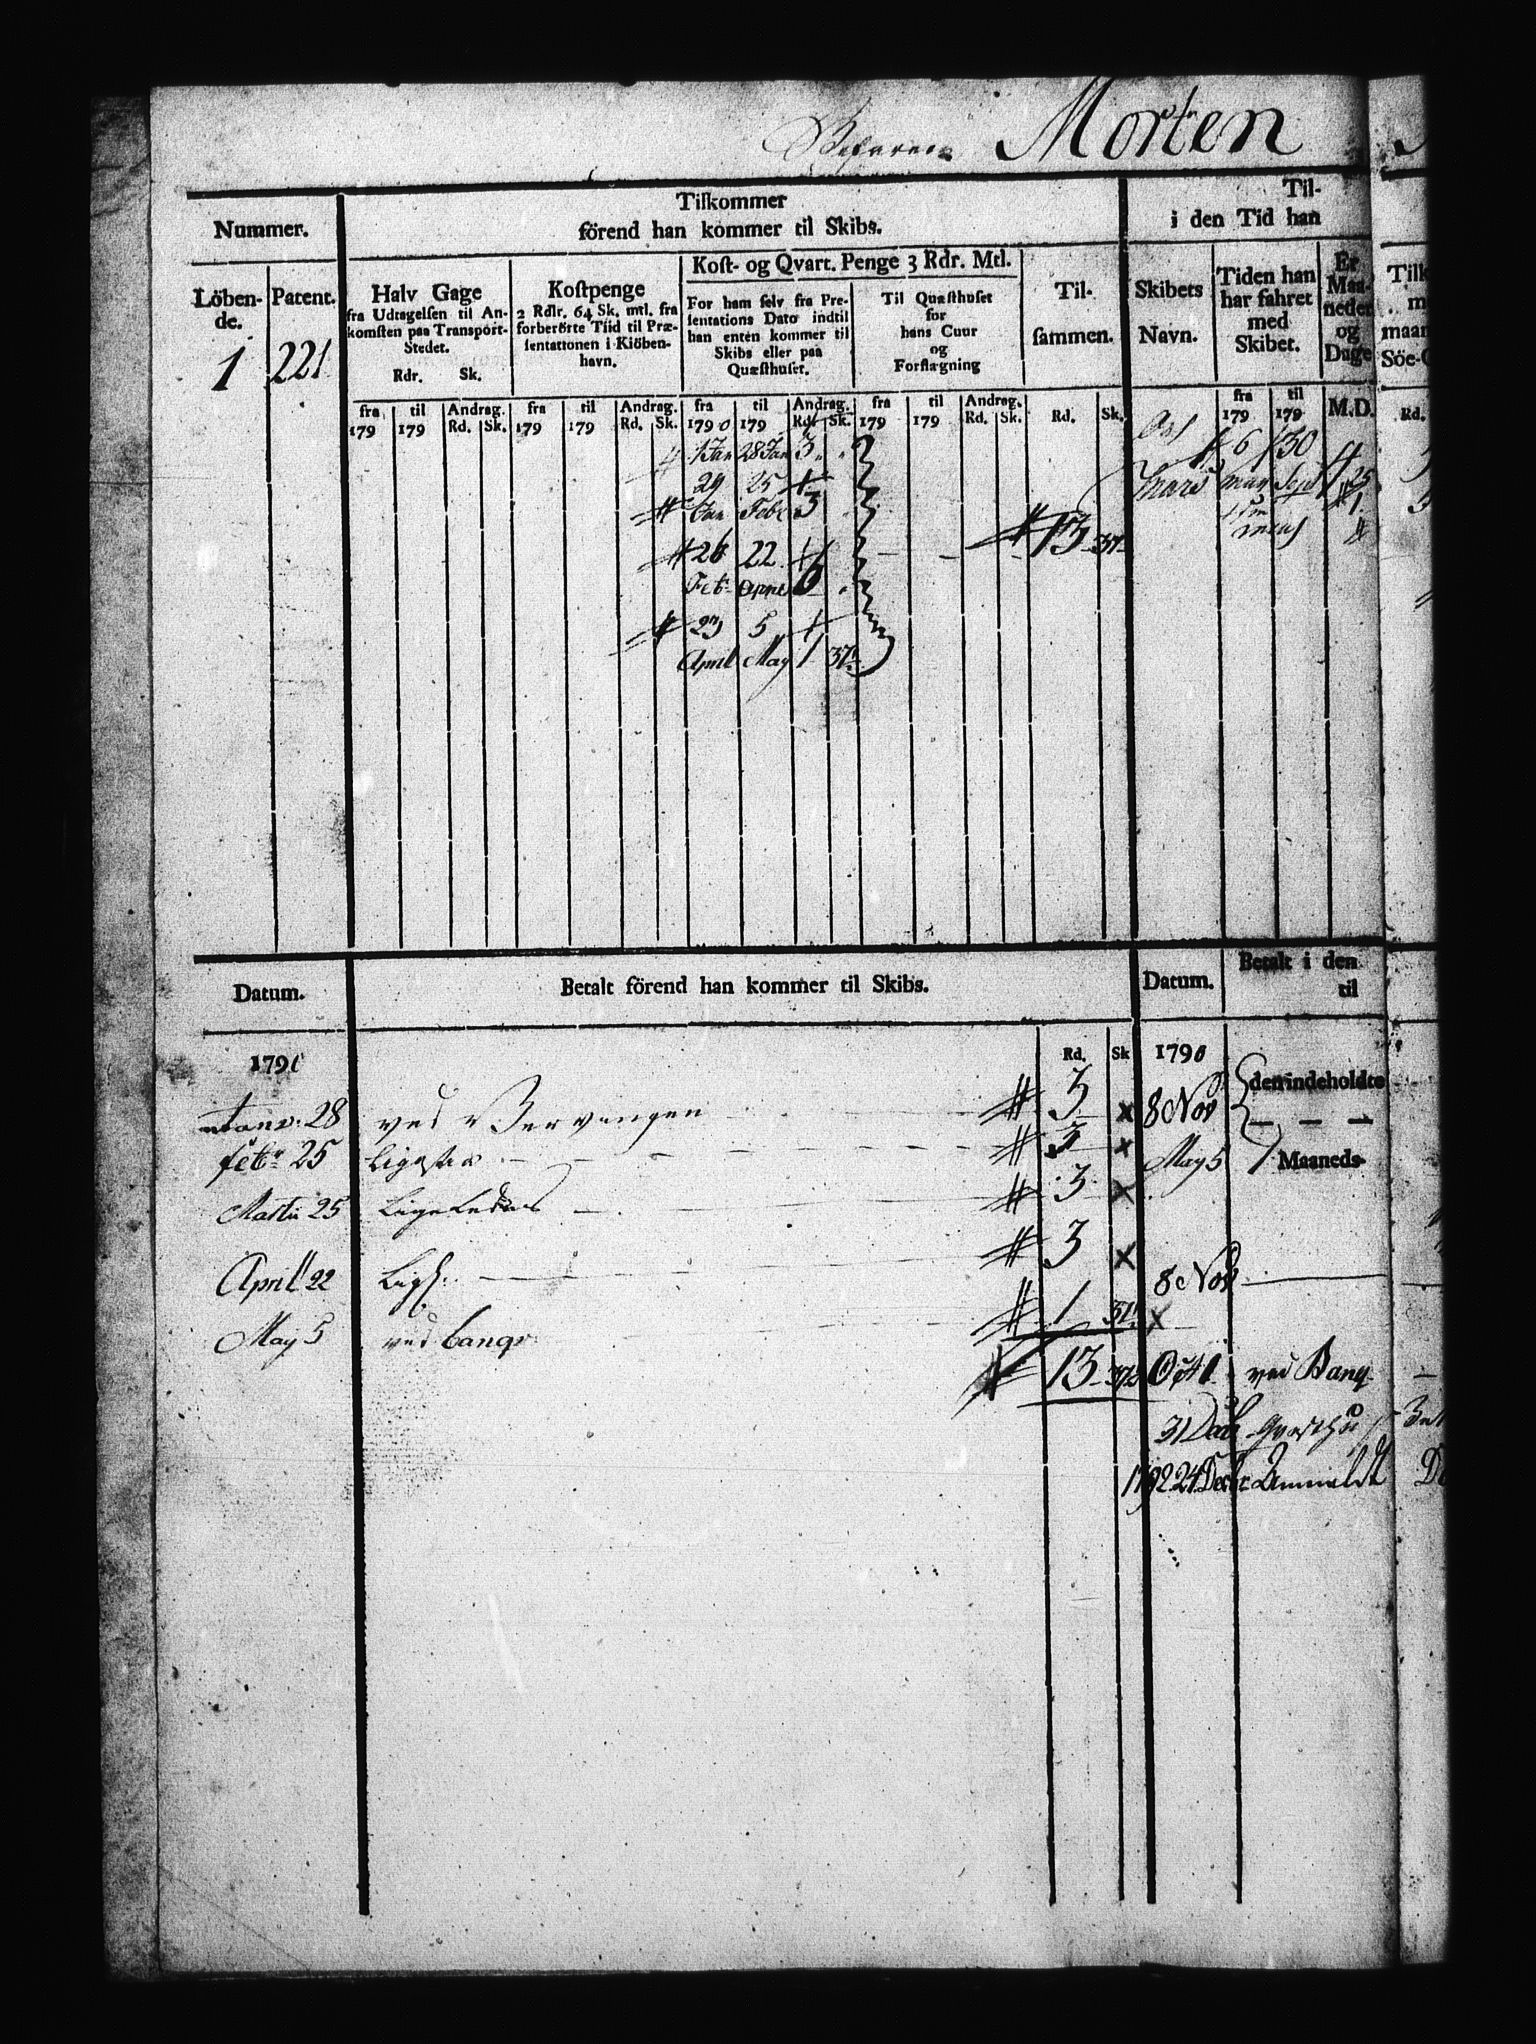 Befaren Morten
Nummer.
Tilkommer
förend han kommer til Skibs.
Til-
i den Tid han
Löben-
de.
Patent.
1
221
Halv Gage
fra Udtagelsen til An-
komsten paa Transport-
Stedet.
Rdr. Sk.
Kostpenge
2 Rdlr. 64 Sk. mtl. fra
forberörte Tiid til Præ-
sentationen i Kiöben-
havn.
Kost- og Qvart. Penge 3 Rdr. Mtl.
For ham selv fra Pre-
sentations Dato indtil
han enten kommer til
Skibs eller paa
Quæsthuset.
Til Quæsthuset
for
hans Cuur
og
Forflægning
Til-
sammen.
Skibets
Navn.
Tiden han
har fahret
med
Skibet.
Er
Maa-
neder
og
Dage
Tilk
m
maan
Söe-G
fra til Andrag. fra til Andrag. fra til Andrag. fra til Andrag.
179 179 Rd. Sk. 179 179 Rd. Sk. 1790 179 Rd. Sk. 179 179 Rd. Sk. Rd. Sk.
fra til
179 179 M.D. Rd.
1 Jan 28 Jan 3
29 25
Jan Febr 3
26 22
Feb April 6
23 5
April May 1 37
13 37
Mars
6 30
May Sept
4 25
Datum.
Betalt förend han kommer til Skibs.
Datum.
Betalt i den
til
1791
Rd. Sk
1790
den indeholdte
Maaneds-
Janv. 28 ved Vervengen 3
8 Nov
Febr 25 3
May 5
Martii 25 Ligeledes 3
April 22 Ligl. 3
8 Nov
May 5 ved banqv 1 37
13 37
Oct 1 ved Banq
31 Dec
1792 24 Decbr Anmeldt